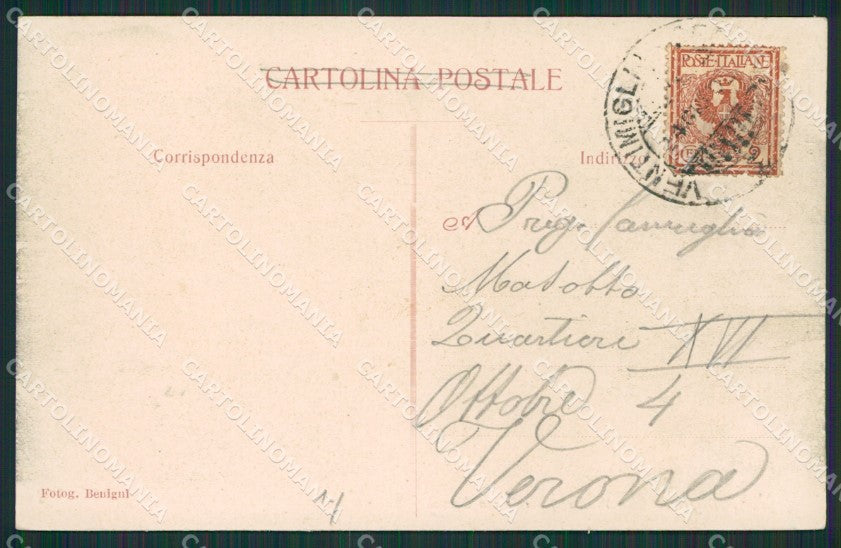 CARTOLINA POSTALE
POSTE ITALIANE
VENTIMIGLIA
Corrispondenza
Indirizzo
A Preg. Famiglia
Matotto
Quartiere XVI
Ottobre 4
Verona
Fotog. Benigni
CARTOLINOMANIA